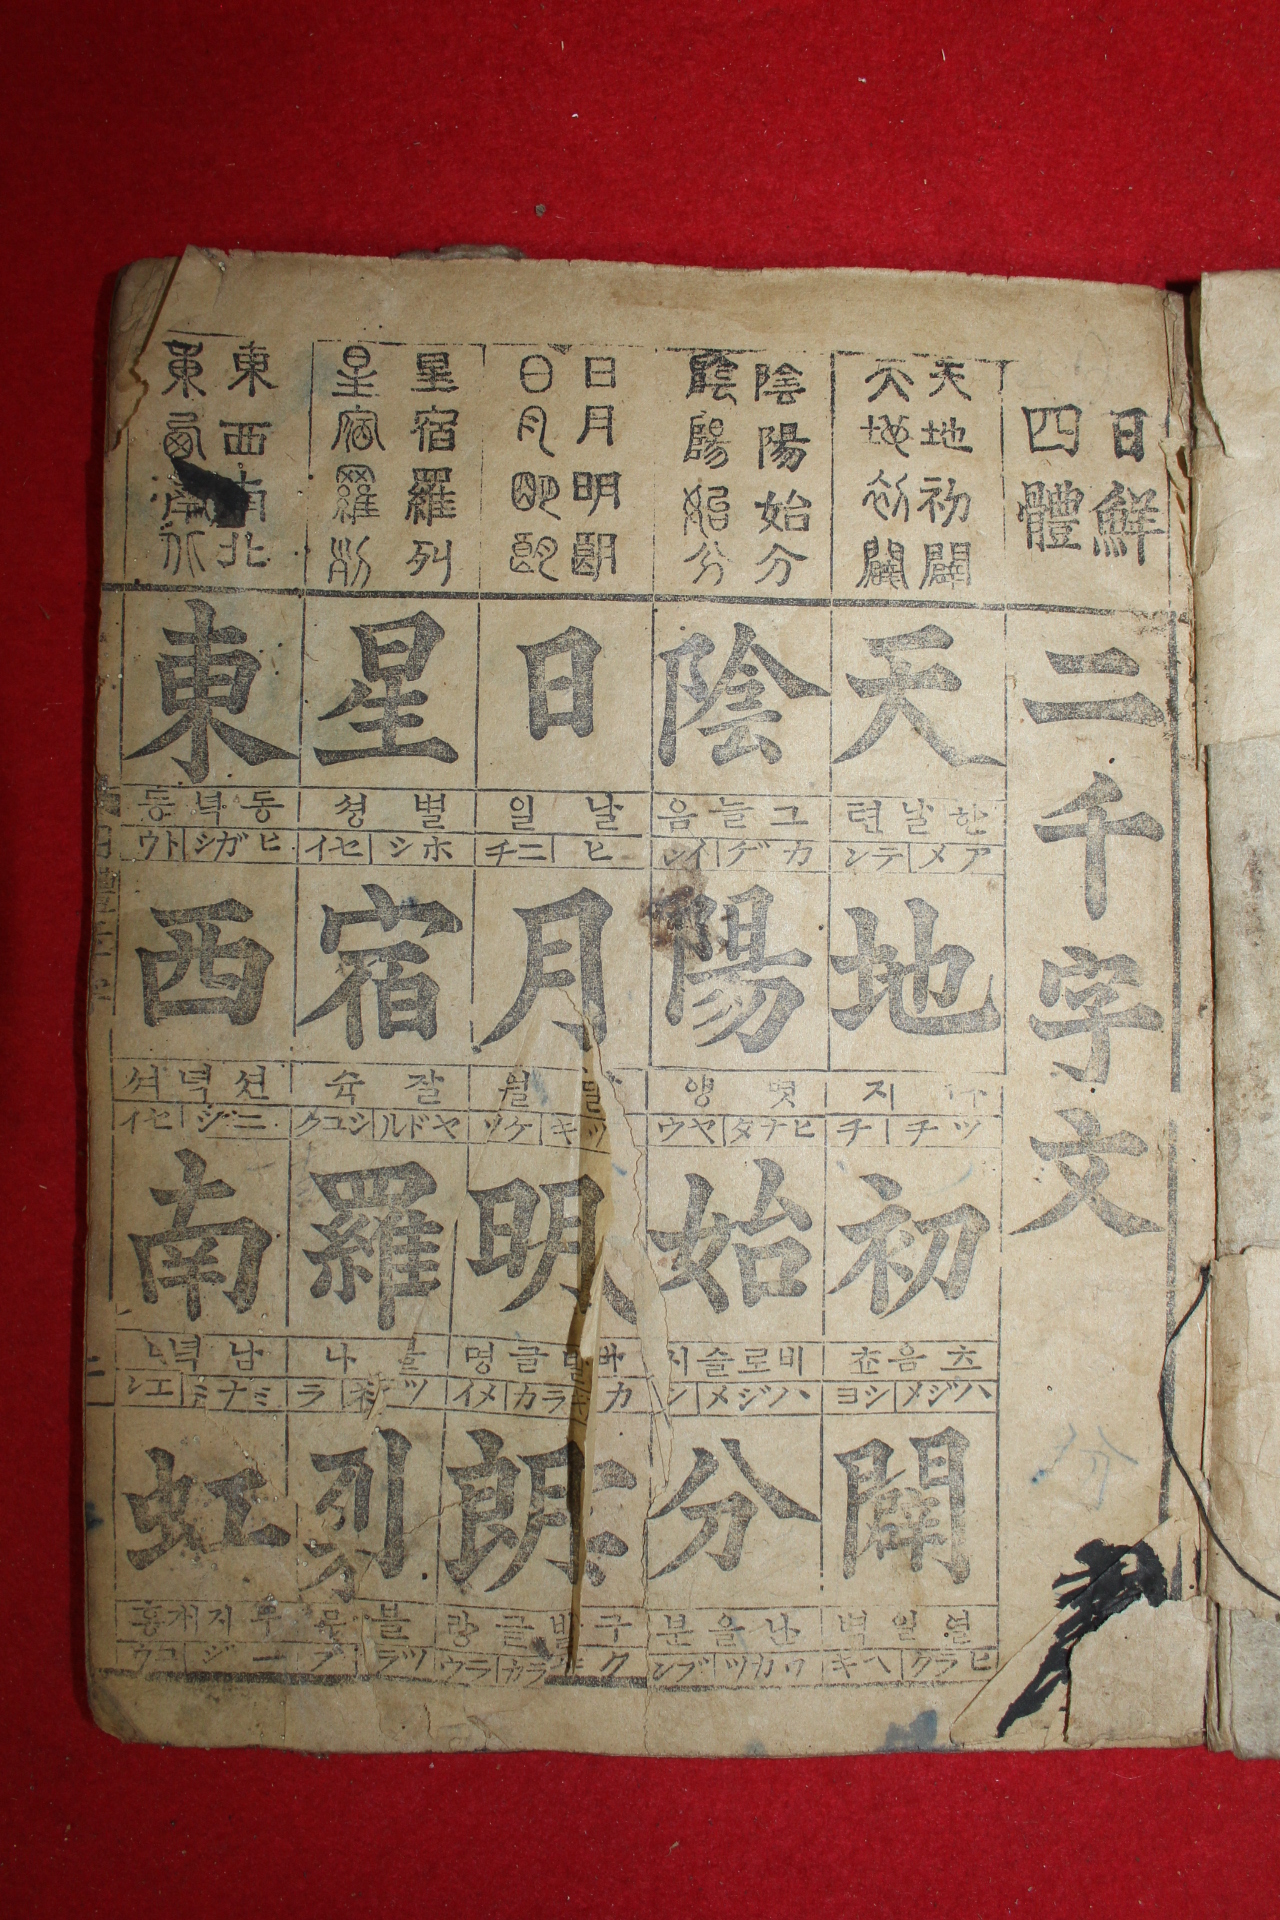 日鮮
四體
二千字文
天地初闢
天地初闢
天
한날텬
アメ|テン
地
지
ツチ|チ
初
음
ハジメ|シヨ
闢
열일벽
ヒラク|ヘキ
陰陽始分
陰陽始分
陰
그늘음
カゲ|イン
陽
볏양
ヒナタ|ヤウ
始
비로슬
ハジメ|
分
난을분
ワカツ|ブン
日月明朗
日月明朗
日
날일
ヒ|ニチ
月
월
ツキ|
明
글명
カ|メイ
朗
글랑
ク|ラウ
星宿羅列
星宿羅列
星
별셩
ホシ|セイ
宿
잘슉
ヤドル|シユク
羅
나
ラ
列
東西南北
東西南北
東
동녁동
ヒガシ|トウ
西
션녁셔
セイ
南
남녁
ミナミ
虹
무지개홍
コウ